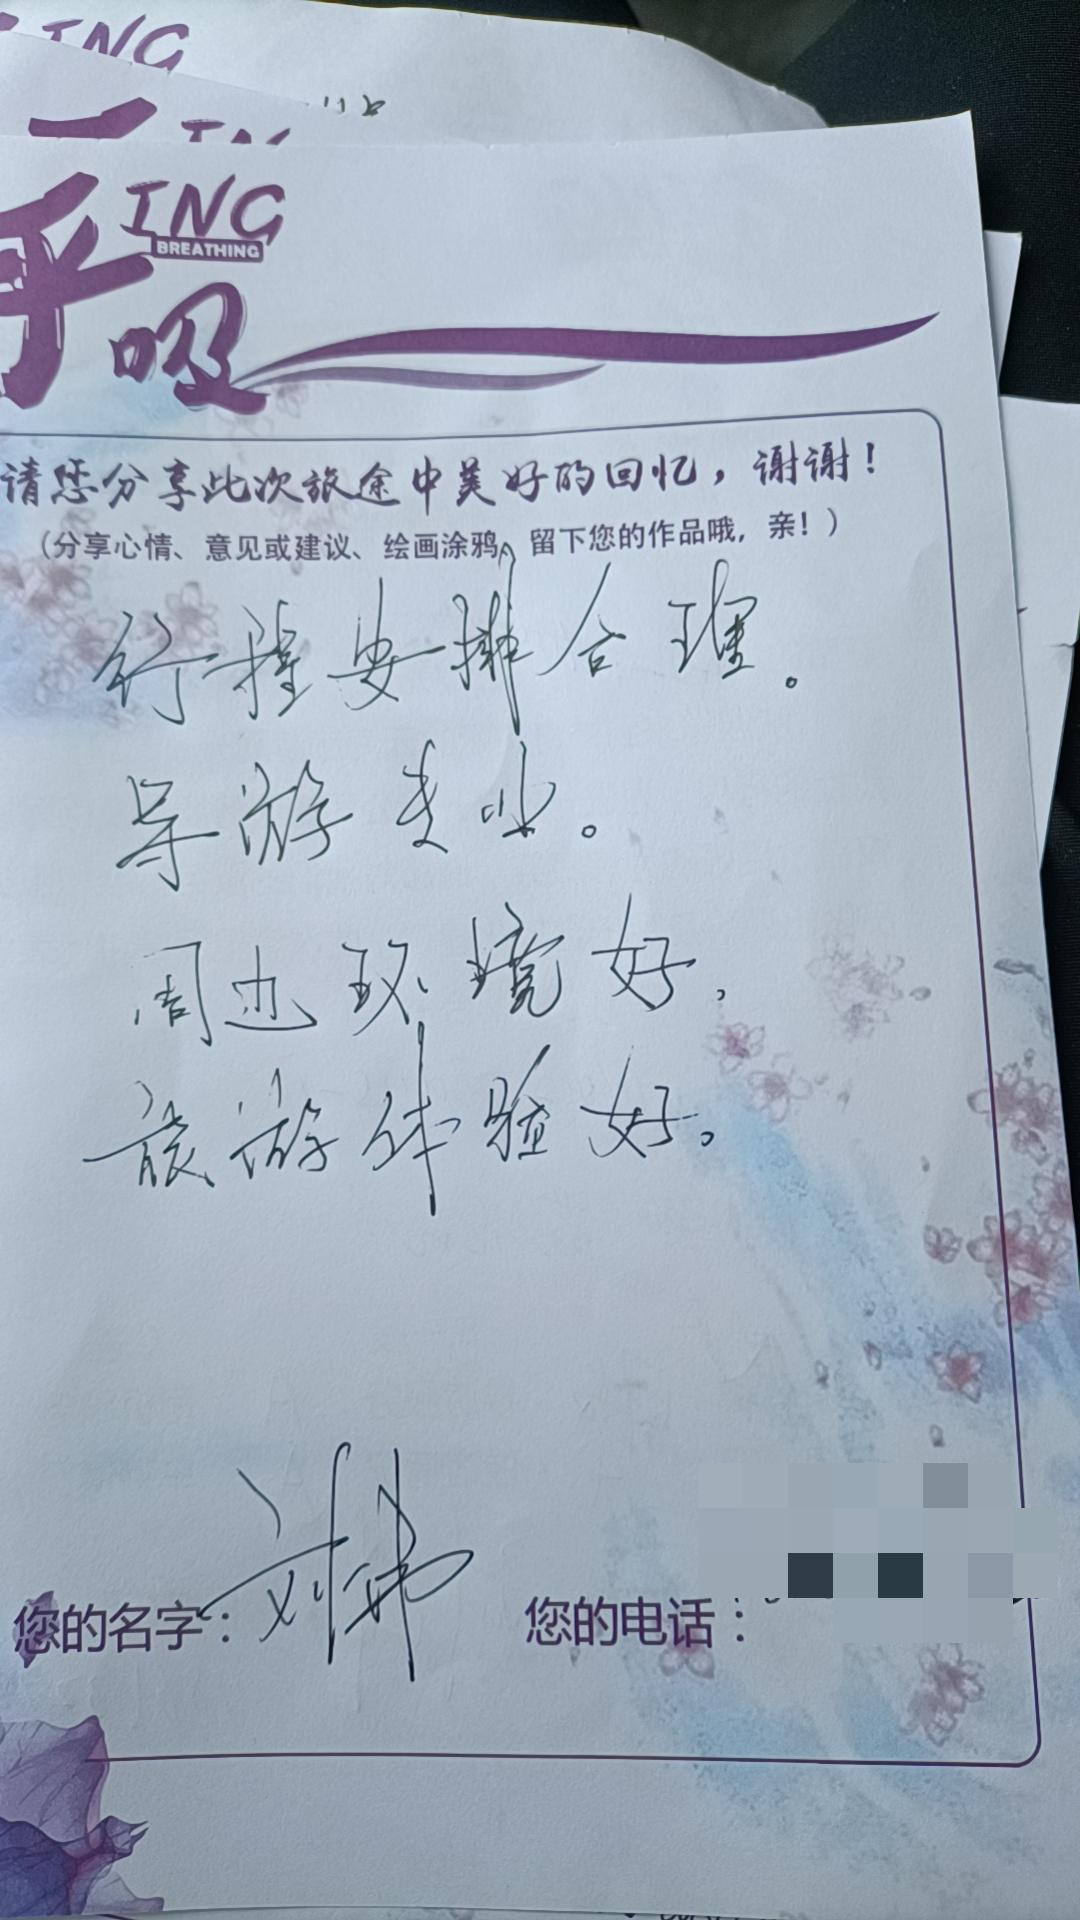 ING
ING
BREATHING
呼吸
请您分享此次旅途中美好的回忆，谢谢！
（分享心情、意见或建议、绘画涂鸦，留下您的作品哦，亲！）
行程安排合理。
导游专业。
周边环境好，
旅游体验好。
您的名字：刘伟
您的电话：